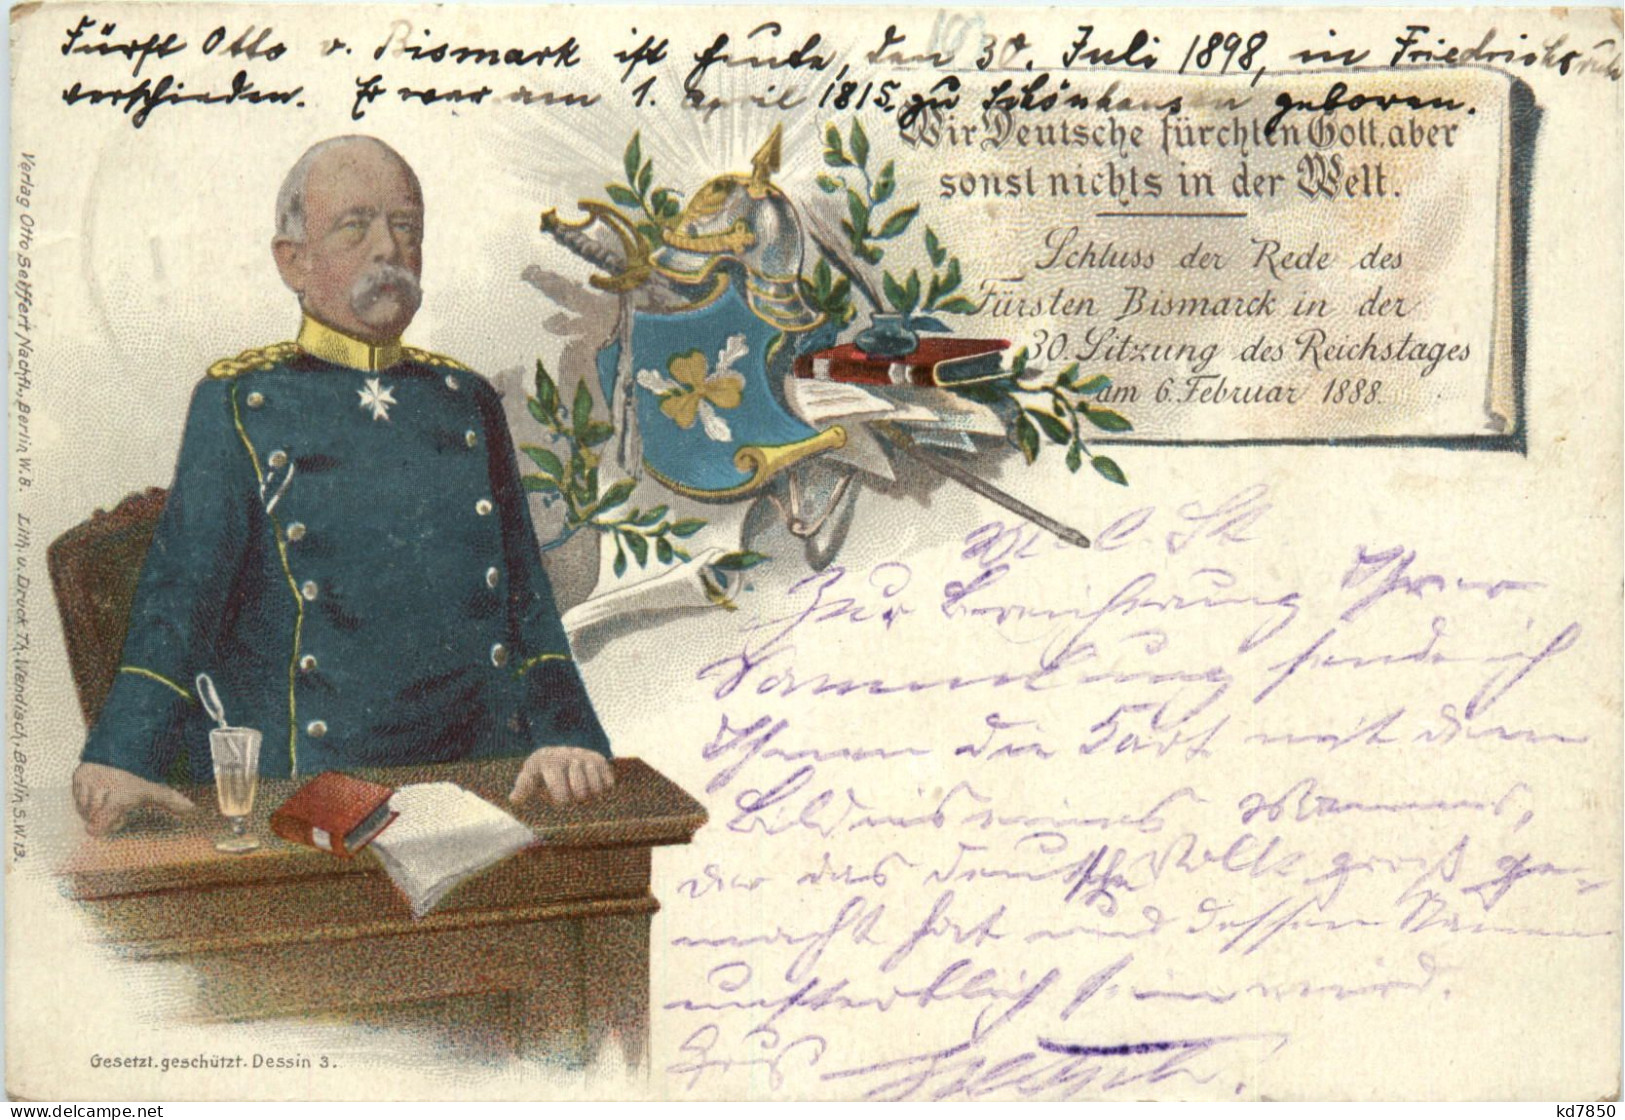 Fürst Otto v. Bismark ist heute, den 30. Juli 1898, in Friedrichsruh
verschieden. Er war am 1. April 1815, zu Schönhausen geboren.
Wir Deutsche fürchten Gott, aber
sonst nichts in der Welt.
Schluss der Rede des
Fürsten Bismarck in der
30. Sitzung des Reichstages
am 6. Februar 1888.
Zur Bereicherung Ihrer
Sammlung sende ich
Ihnen die Kart mit dem
Bildnis eines Mannes,
der das deutsche Volk groß ge-
macht hat und dessen Namen
unsterblich sein wird.
Gruß
Verlag Otto Seiffert Nachfl., Berlin W. 8. Lith. u. Druck Th. Wendisch, Berlin S.W. 13.
Gesetzl. geschützt. Dessin 3.
kd7850